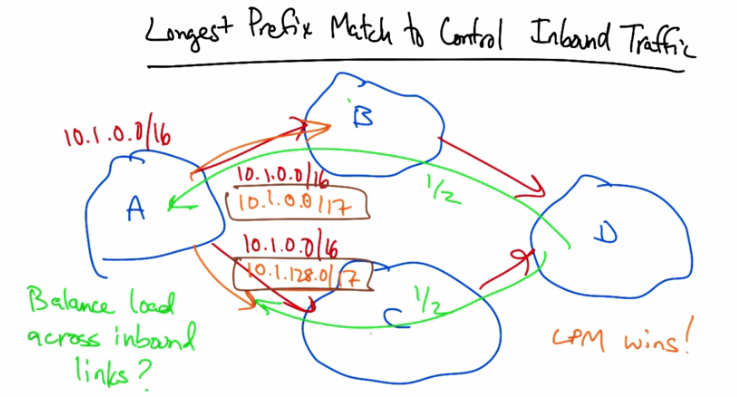 Longest Prefix Match to Control Inbound Traffic
10.1.0.0/16
B
A
10.1.0.0/16
10.1.0.0/17
1/2
D
10.1.0.0/16
10.1.128.0/17
C
1/2
Balance load
across inbound
links?
LPM wins!